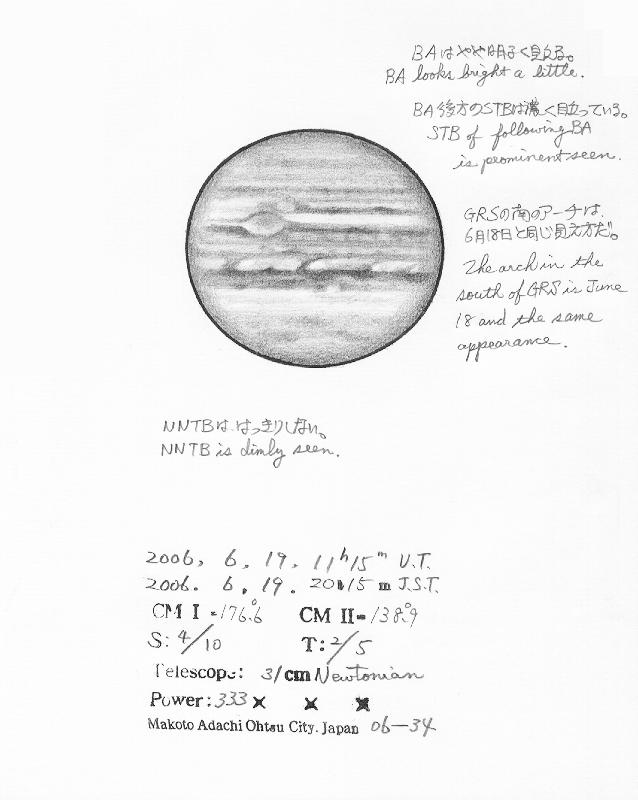 BAはやや明るく見える。
BA looks bright a little.
BA後方のSTBは濃く目立っている。
STB of following BA
is prominent seen.
GRSの南のアーチは、
6月18日と同じ見え方だ。
The arch in the
south of GRS is June
18 and the same
appearance.
NNTBは、はっきりしない。
NNTB is dimly seen.
2006, 6, 19, 11h15m U.T.
2006. 6, 19. 20h15m J.S.T.
CM I = 176.°6 CM II = 138.°9
S: 4/10 T: 2/5
Telescope: 31cm Newtonian
Power: 333× × ×
Makoto Adachi Ohtsu City. Japan 06-34